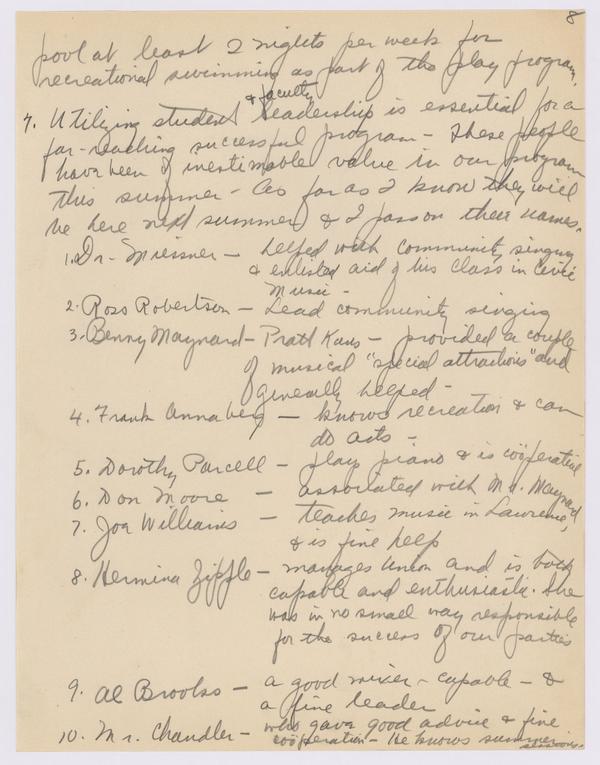 8
pool at least 2 nights per week for
recreational swimming as part of the play program.
& faculty
7. Utilizing student leadership is essential for a
far-reaching successful program - These people
have been of inestimable value in our program
this summer - As far as I know they will
be here next summer & I pass on their names.
1. Dr. Miessner - helped with community singing
& enlisted aid of his class in Civic
Music -
2. Ross Robertson - Lead community singing
3. Benny Maynard - Pratt Kans - provided a couple
of musical "special attractions" and
generally helped -
4. Frank Annaberg - knows recreation & can
do acts -
5. Dorothy Purcell - plays piano & is coöperative
6. Don Moore - associated with Mr. Maynard
7. Joe Williams - teaches music in Lawrence,
& is fine help
8. Hermina Zipfle - manages Union and is both
capable and enthusiastic. She
was in no small way responsible
for the success of our parties
9. Al Brooks - a good mixer - capable - &
a fine leader
10. Mr. Chandler - who gave good advice & fine
coöperation - He knows summer
sessions.